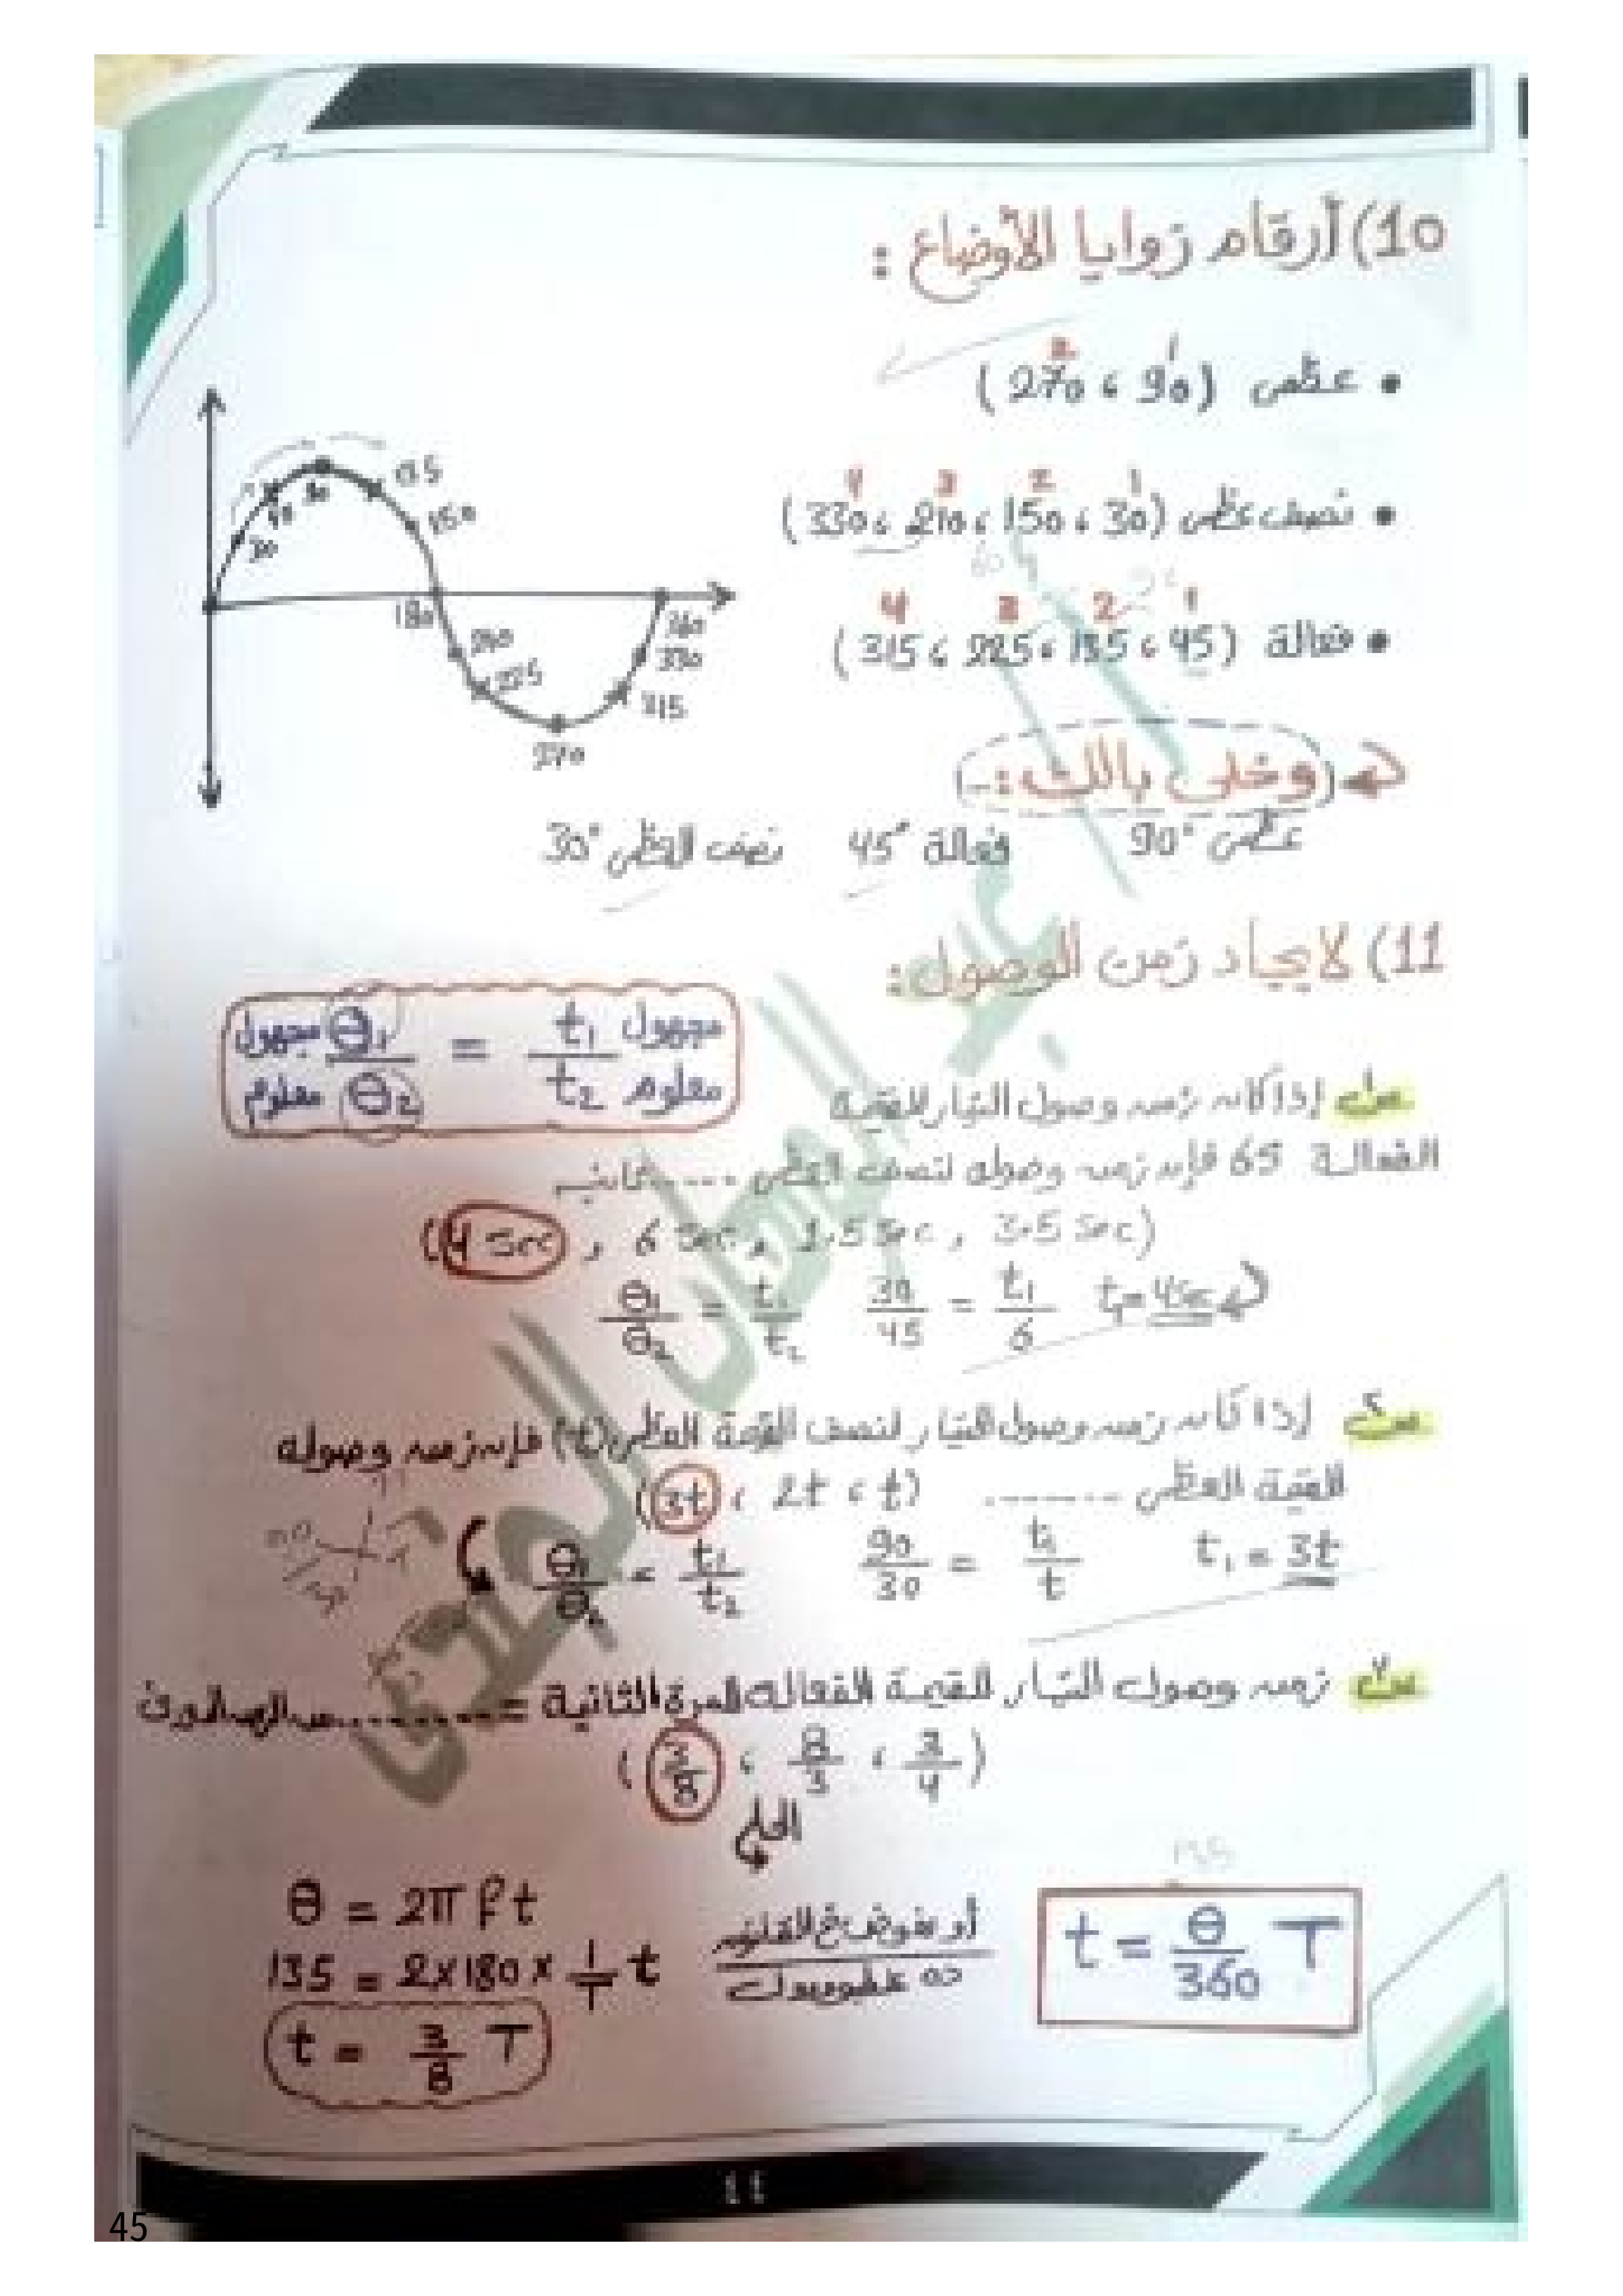 10) أرقام زوايا الأوضاع :
• عظمى (90 ، 270)
1 2
• نصف عظمى (30 ، 150 ، 210 ، 330)
1 2 3 4
• فعالة (45 ، 135 ، 225 ، 315)
1 2 3 4
30
90
135
150
180
225
270
315
330
360
وخلى بالك :-
عظمى 90° فعالة 45° نصف العظمى 30°
11) لايجاد زمن الوصول :
مجهول θ1 / معلوم θ2 = t1 مجهول / t2 معلوم
إذا كان زمن وصول التيار للقيمة
الفعالة 6S فإن زمن وصوله لنصف العظمى ..... ثانية
(4 sec , 6 sec , 1.5 sec , 3.5 sec)
θ1/θ2 = t1/t2 30/45 = t1/6 t1 = 4sec
س2 إذا كان زمن وصول التيار لنصف القيمة العظمى (t) فإن زمن وصوله
للقيمة العظمى ........ (t ، 2t ، 3t)
θ1/θ2 = t1/t2 90/30 = t1/t t1 = 3t
س3 زمن وصول التيار للقيمة الفعالة للمرة الثانية = ......... من الزمن الدورى
(3/4 ، 8/3 ، 3/8)
الحل
θ = 2π f t
135 = 2×180× 1/T t
t = 3/8 T
أو نعوض فى القانون
ده علطول
t = θ/360 T
٤٤
45